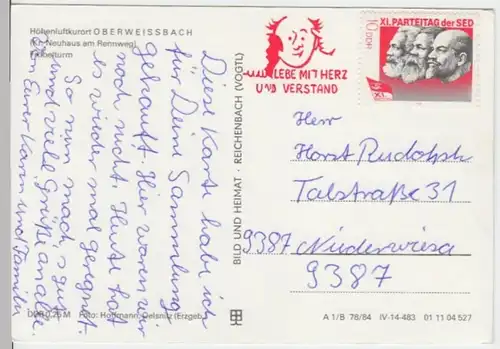 Höhenluftkurort OBERWEISSBACH
(Kr. Neuhaus am Rennweg)
Fröbelturm
Diese Karte habe ich
für Deine Sammlung
gekauft. Hier waren wir
noch nicht. Heute hat
es wieder mal geregnet.
So nun mach's gut
und viele Grüße an alle.
von Eurer Karin und Familie
DDR 0,25 M Foto: Hoffmann, Oelsnitz (Erzgeb.)
BILD UND HEIMAT · REICHENBACH (VOGTL)
LEBE MIT HERZ
UND VERSTAND
10 DDR
XI. PARTEITAG der SED
XI.
Herr
Horst Rudolph
Talstraße 31
9387 Niederwiesa
9387
A 1/B 78/84 IV-14-483 01 11 04 527